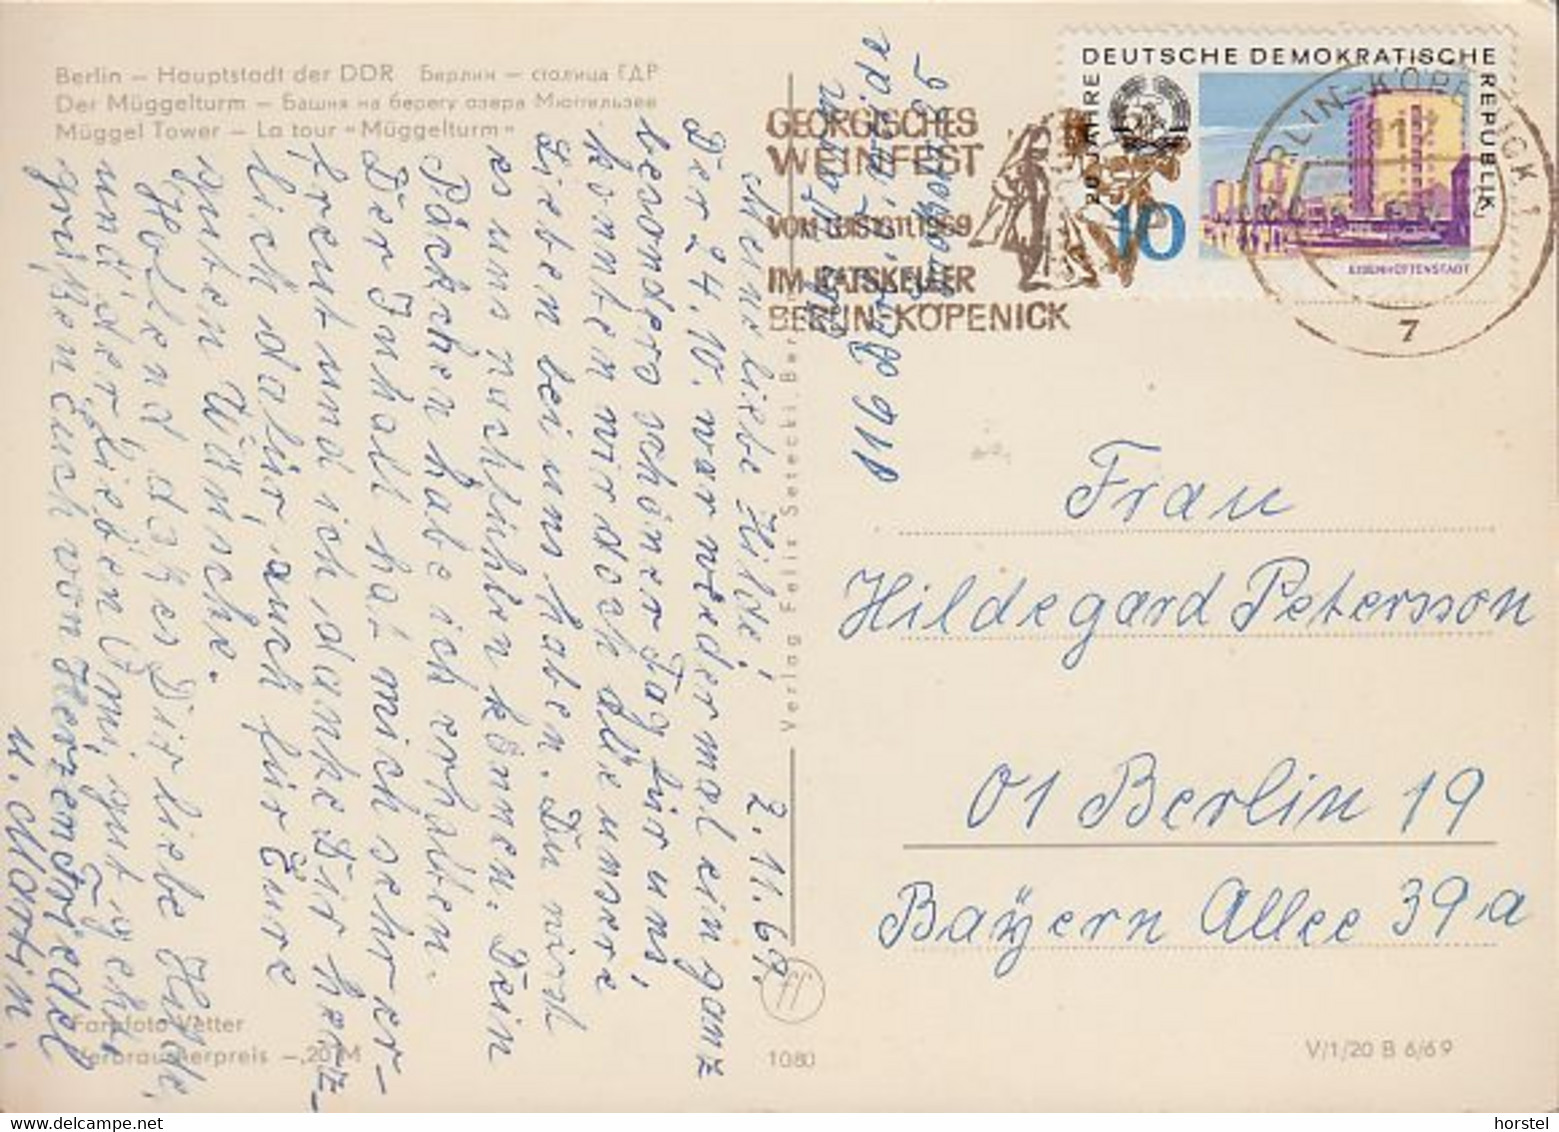 Berlin – Hauptstadt der DDR Берлин – столица ГДР
Der Müggelturm – Башня на берегу озера Мюггельзее
Müggel Tower – La tour "Müggelturm"
Meine liebe Hilde! 2.11.69.
Der 24.10. war wieder mal ein ganz
besonders schöner Tag für uns,
konnten wir doch alle unsere
Lieben bei uns haben. Du wirst
es uns nachfühlen können. Dein
Päckchen habe ich erhalten.
Der Inhalt hat mich sehr er-
freut und ich danke Dir herz-
lich dafür, auch für Eure
guten Wünsche.
Hoffend, daß es Dir liebe Hilde,
und der lieben Omi, gut geht,
grüßen Euch von Herzen Friedel
u. Martin.
Farbfoto Vetter
Verbraucherpreis –,20 M
Verlag Felix Setecki, Berlin
1080
V/1/20 B 6/69
116 Berlin
GEORGISCHES
WEINFEST
IM RATSKELLER
BERLIN-KÖPENICK
DEUTSCHE DEMOKRATISCHE
REPUBLIK
20 JAHRE
10
EISENHÜTTENSTADT
BERLIN-KÖPENICK 1
7
Frau
Hildegard Petersson
01 Berlin 19
Bayern Allee 39a
horstel